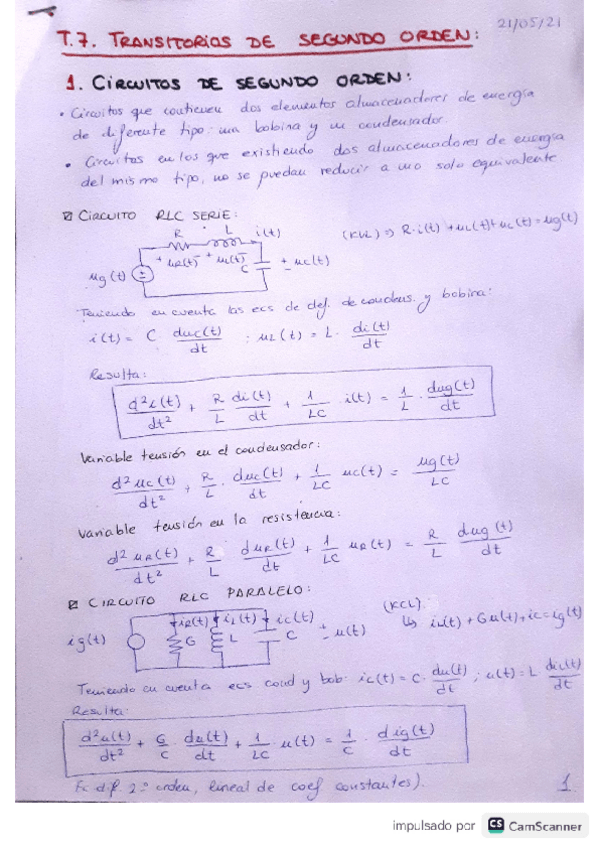 21/05/21
T.7. TRANSITORIOS DE SEGUNDO ORDEN:
1. CIRCUITOS DE SEGUNDO ORDEN:
• Circuitos que contienen dos elementos almacenadores de energía
de diferente tipo: una bobina y un condensador.
• Circuitos en los que existiendo dos almacenadores de energía
del mismo tipo, no se puedan reducir a uno solo equivalente
CIRCUITO RLC SERIE:
R L i(t) (KVL) => R·i(t) + uL(t) + uc(t) = ug(t)
+ uR(t) - + uL(t) - C + - uc(t)
ug(t)
Teniendo en cuenta las ecs de def. de condens. y bobina:
i(t) = C duc(t)/dt ; uL(t) = L · di(t)/dt
Resulta:
d²i(t)/dt² + R/L di(t)/dt + 1/LC · i(t) = 1/L · dug(t)/dt
Variable tensión en el condensador:
d²uc(t)/dt² + R/L · duc(t)/dt + 1/LC uc(t) = ug(t)/LC
Variable tensión en la resistencia:
d²uR(t)/dt² + R/L duR(t)/dt + 1/LC uR(t) = R/L dug(t)/dt
CIRCUITO RLC PARALELO:
(KCL)
iR(t) iL(t) ic(t) iL(t) + Gu(t) + ic = ig(t)
ig(t) G L C + - u(t)
Teniendo en cuenta ecs cond y bob: ic(t) = C · du(t)/dt ; u(t) = L diL(t)/dt
Resulta:
d²u(t)/dt² + G/C du(t)/dt + 1/LC · u(t) = 1/C · dig(t)/dt
2º orden, lineal de coef constantes).
1
impulsado por CS CamScanner